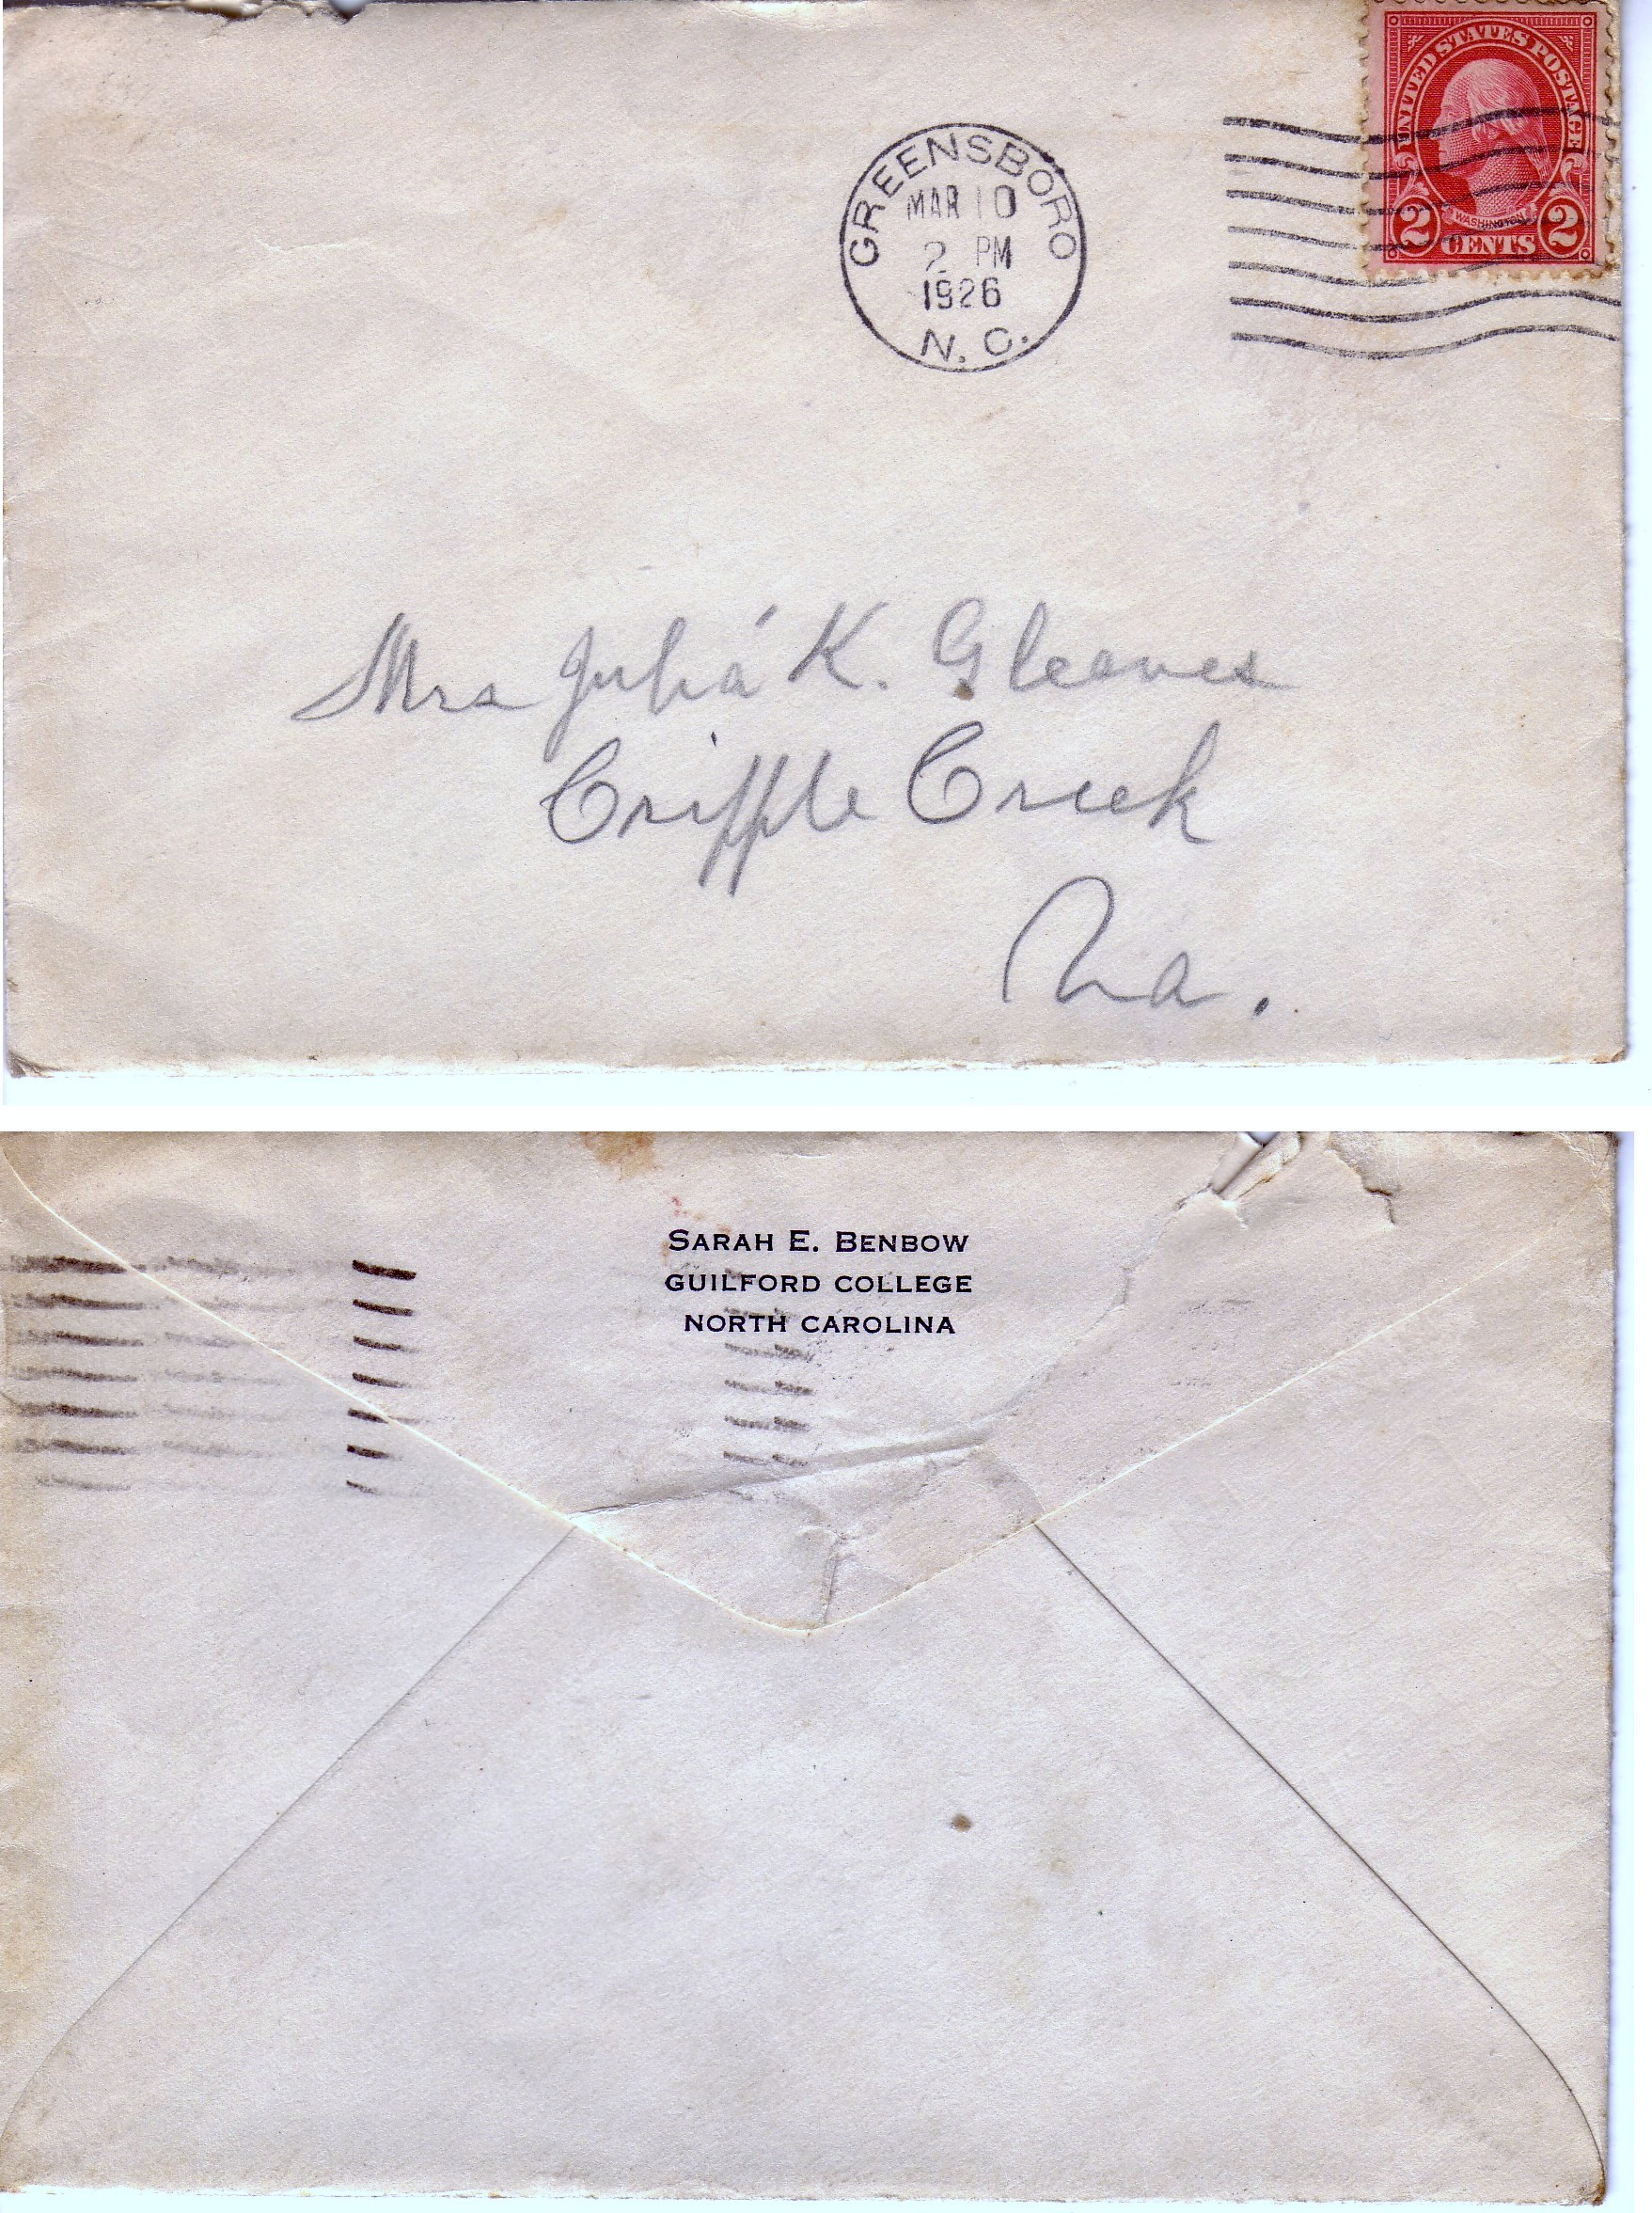 UNITED STATES POSTAGE
WASHINGTON
2 CENTS 2
GREENSBORO
MAR 10
2 PM
1926
N. C.
Mrs Julia K. Gleaves
Cripple Creek
Va.
SARAH E. BENBOW
GUILFORD COLLEGE
NORTH CAROLINA